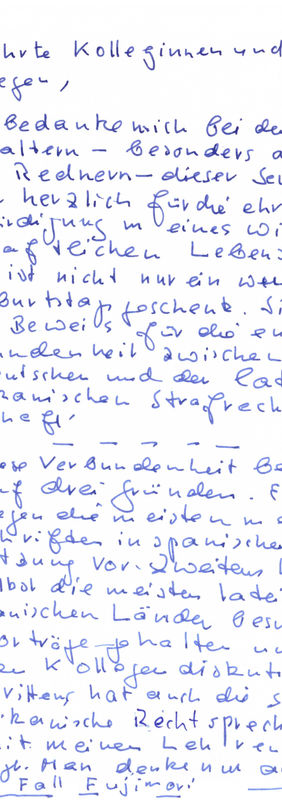 hrte Kolleginnen und
egen,
Bedanke mich bei de
altern – besonders a
Rednern – dieser Se
herzlich für die ehr
rdigung meines wi
aftlichen Lebens
ist nicht nur ein
burtstagsgeschenk. Si
Beweis für die en
undenheit zwischen
utschen und der lat
kanischen Strafrech
heft.
ese Verbundenheit be
uf drei Gründen. E
egen die meisten me
hriften in spanische
tzung vor. Zweitens
lbst die meisten latei
anischen Länder besu
orträge gehalten un
en Kollegen diskuti
rittens hat auch die s
ikanische Rechtsprech
it meinen Lehren
gt. Man denke nur a
Fall Fujimori